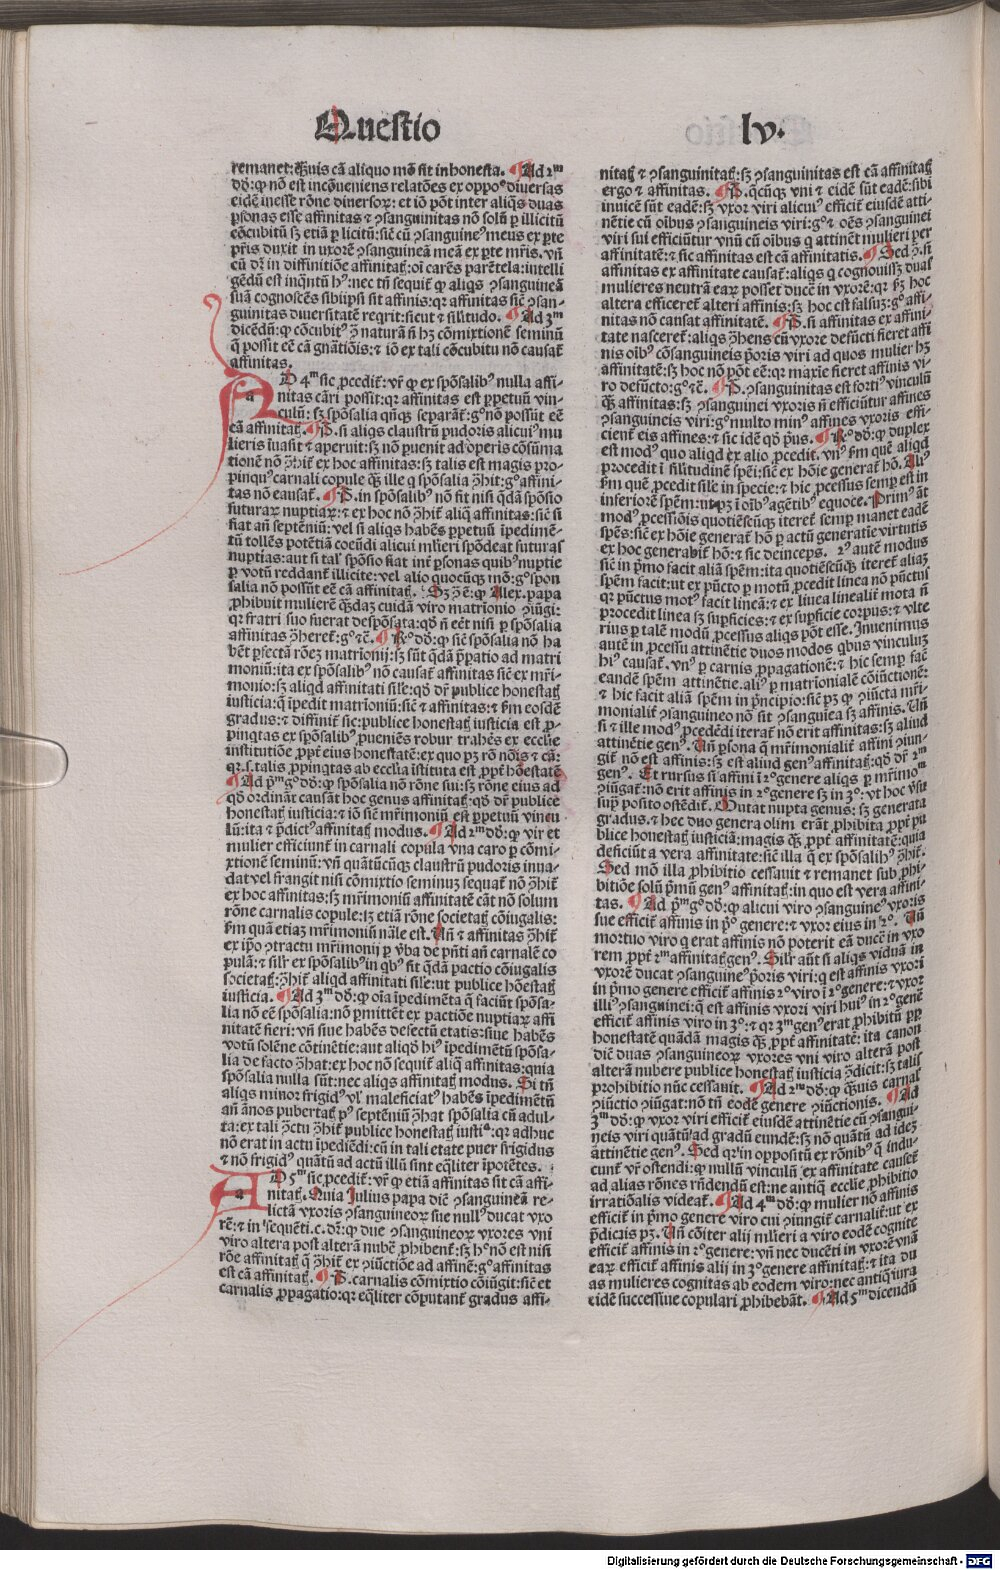 Questio
lv.
remanet: q̃uis cã aliquo mõ fit in honesta. Ad 2ᵐ
dd: ꝙ nõ est incõueniens relatões ex oppoᵒ diuersas
eidẽ inesse rõne diuersoꝝ: et iõ põt inter aliq̃s duas
ꝑsonas esse affinitas ⁊ ꝯsanguinitas nõ solũ ꝑ illicitũ
cõcubitũ sꝫ etiã ꝑ licitũ: sic̃ cũ ꝯsanguineꝰ meus ex ꝑte
pr̃is duxit in uxorẽ ꝯsanguineã meã ex ꝑte mr̃is. vñ
cũ dr̃ in diffinitiõe affinitaꝭ: oĩ carẽs parẽtela: intelli
gẽdũ est inq̃ntũ hꝰ: nec tñ sequiť ꝙ aliqs ꝯsanguineã
suã cognoscẽs sibiipsi sit affinis: qꝛ affinitas sic̃ ꝯsan-
guinitas diuersitatẽ reqrit: sicut ⁊ silitudo. Ad 3ᵐ
dicẽdũ: ꝙ cõcubitꝰ ꝯ̃ naturã ñ hꝫ cõmixtionẽ seminũ
q̃ possit eẽ cã gñatiõis: ⁊ iõ ex tali cõcubitu nõ causať
affinitas.
AD 4ᵐ sic ꝓcediť: vr̃ ꝙ ex spõsalibꝰ nulla affi-
nitas cãri possit: qꝛ affinitas est ꝑpetuũ vin-
culũ: sꝫ spõsalia qñqꝫ separãť: gᵒ nõ possũt eẽ
cã affinitaꝭ. P̃. si aliqs claustrũ pudoris alicuiꝰ mu
lieris ĩuasit ⁊ aperuit: sꝫ nõ ꝑuenit ad operis cõsũma
tionẽ nõ ꝯ̃hiť ex hoc affinitas: sꝫ talis est magis pro-
pinquꝰ carnali copule q̃ꝫ ille q spõsalia ꝯ̃hit: gᵒ affini-
tas nõ causať. P̃. in spõsalibꝰ nõ fit nisi q̃dã spõsio
futuraꝝ nuptiaꝝ: ⁊ ex hoc nõ ꝯ̃hiť aliq̃ affinitas: sic̃ si
fiat añ septẽniũ: vel si aliqs habẽs ꝑpetuũ ĩpedimẽ-
tũ tollẽs potẽtiã coeũdi alicui mĺieri spõdeat futuras
nuptias: aut si talꝰ spõsio fiat inť ꝑsonas quibꝰ nuptie
ꝑ votũ reddanť illicite: vel alio quocũqꝫ mõ: gᵒ spon
salia nõ possũt eẽ cã affinitaꝭ. Sꝫ ꝯ̃ẽ: ꝙ Alex. papa
ꝓhibuit mulierẽ q̃ꝫdaꝫ cuidã viro matrĩonio ꝯiũgi:
qꝛ fratri suo fuerat despõsata: qđ ñ eẽt nisi ꝑ spõsalia
affinitas ꝯ̃hereť: gᵒ ⁊c̃. Rᵒ dd: ꝙ sic̃ spõsalia nõ ha
bẽt ꝑfectã rõeꝫ matrĩonij: sꝫ sũt q̃dã p̃ꝑatio ad matri
moniũ: ita ex spõsalibꝰ nõ causať affinitas sic̃ ex mr̃i-
monio: sꝫ aliqđ affinitati sile: qđ dr̃ publice honestaꝭ
iusticia: q̃ ĩpedit matrĩoniũ: sic̃ ⁊ affinitas: ⁊ fm eosdẽ
gradus: ⁊ diffiniť sic: publice honestaꝭ iusticia est ꝓ-
pinq̃tas ex spõsalibꝰ ꝓueniẽs robur trahẽs ex ecclie
institutiõe ꝓpť eius honestatẽ: ex quo pꝫ rõ noĩs ⁊ cã:
qꝛ.s. talis ꝓpinq̃tas ab ecclia ĩstituta est ꝓpť hõestatẽ
Ad pᵐ gᵒ dd: ꝙ spõsalia nõ rõne sui: sꝫ rõne eius ad
qđ ordinãť causãť hoc genus affinitaꝭ: qđ dr̃ publice
honestaꝭ iusticia: ⁊ iõ sic̃ mr̃imoniũ est ꝑpetuũ vincu
lũ: ita ⁊ p̃dictꝰ affinitaꝭ modus. Ad 2ᵐ dd: ꝙ vir et
mulier efficiunť in carnali copula vna caro ꝑ cõmi-
xtionẽ seminũ: vñ quãtũcũqꝫ claustrũ pudoris inua-
dat vel frangit nisi cõmixtio seminuꝫ sequať nõ ꝯ̃hiť
ex hoc affinitas: sꝫ mr̃imoniũ affinitatẽ cãt nõ solum
rõne carnalis copule: sꝫ etiã rõne societaꝭ cõiugalis:
fm quã etiaꝫ mr̃imoniũ nãle est. Vñ ⁊ affinitas ꝯ̃hiť
ex ip̃o ꝯtractu mr̃imonij ꝑ v̾ba de pñti añ carnalẽ co
pulã: ⁊ silr̃ ex spõsalibꝰ in qbꝰ fit q̃dã pactio cõiugalis
societaꝭ: ꝯ̃hiť aliqđ affinitati sile: ut publice hõestaꝭ
iusticia. Ad 3ᵐ dd: ꝙ oĩa ĩpedimẽta q̃ faciũt spõsa-
lia nõ eẽ spõsalia: nõ ꝑmittẽt ex pactiõe nuptiaꝝ affi
nitatẽ fieri: vñ siue habẽs defectũ etatis: siue habẽs
votũ solẽne cõtinẽtie: aut aliqđ hiꝰ ĩpedimẽtũ spõsa-
lia de facto ꝯ̃hat: ex hoc nõ sequiť aliq̃ affinitas: quia
spõsalia nulla sũt: nec aliqs affinitaꝭ modus. Si tñ
aliqs minor frigidꝰ vĺ maleficiatꝰ habẽs ĩpedimẽtũ
añ ãnos pubertaꝭ pᵒ septẽniũ ꝯ̃hat spõsalia cũ adul-
ta: ex tali ꝯ̃ctu ꝯ̃hiť publice honestaꝭ iustiᵃ: qꝛ adhuc
nõ erat in actu ĩpediẽdi: cũ in tali etate puer frigidus
⁊ nõ frigidꝰ quãtũ ad actũ illũ sint eq̃liter ĩpotẽtes.
AD 5ᵐ sic ꝓcediť: vr̃ ꝙ etiã affinitas sit cã affi-
nitaꝭ. Quia Julius papa dic̃ ꝯsanguineã re-
lictã vxoris ꝯsanguineoꝝ siue nullꝰ ducat vxo
rẽ: ⁊ in sequẽti.c. dr̃: ꝙ due ꝯsanguineoꝝ vxores vni
viro altera post alterã nubẽ ꝓhibent: sꝫ hᵒ nõ est nisi
rõe affinitaꝭ q̃ ꝯ̃hiť ex ꝯiũctiõe ad affinẽ: gᵒ affinitas
est cã affinitaꝭ. P̃. carnalis cõmixtio cõiũgit: sic̃ et
carnalis ꝓpagatio: qꝛ eq̃liter cõputanť gradus affi-
nitaꝭ ⁊ ꝯsanguinitaꝭ: sꝫ ꝯsanguinitas est cã affinitaꝭ
ergo ⁊ affinitas. P̃. q̃cũqꝫ vni ⁊ eidẽ sũt eadẽ: sibi
inuicẽ sũt eadẽ: sꝫ vxor viri alicuiꝰ efficiť eiusdẽ atti-
nẽtie cũ oĩbus ꝯsanguineis viri: gᵒ ⁊ oẽs ꝯsanguinei
viri sui efficiũtur vnũ cũ oĩbus q attinẽt mulieri ꝑer
affinitatẽ: ⁊ sic affinitas est cã affinitatis. Sed ꝯ̃. si
affinitas ex affinitate causať: aliqs q cognouissꝫ duas
mulieres neutrã eaꝝ posset ducẽ in vxorẽ: qꝛ fꝫ hoc
altera efficereť alteri affinis: sꝫ hoc est falsuꝫ: gᵒ affi-
nitas nõ causat affinitatẽ. P̃. si affinitas ex affini-
tate nascereť: aliqs ꝯ̃hens cũ vxore defũcti fieret affi
nis oĩbꝰ cõsanguineis p̃oris viri ad quos mulier hꝫ
affinitatẽ: sꝫ hoc nõ põt eẽ: qꝛ maxie fieret affinis vi-
ro defũcto: gᵒ ⁊c̃. P̃. ꝯsanguinitas est fortiꝰ vinculũ
q̃ꝫ affinitas: sꝫ ꝯsanguinei vxoris ñ efficiũtur affines
ꝯsanguineis viri: gᵒ multo minꝰ affines vxoris effi-
cienť eis affines: ⁊ sic idẽ qđ p̃us. Rᵒ dd: ꝙ duplex
est modꝰ quo aliqđ ex alio ꝓcedit. vnꝰ fm quẽ aliqđ
ꝓcedit ĩ silitudinẽ spẽi: sic̃ ex hõie generať hõ. Aliꝰ
fm quẽ ꝓcedit sile in specie: ⁊ hic ꝓcessus semꝑ est in
inferiorẽ spẽm: ut pꝫ ĩ oĩbꝰ agẽtibꝰ equoce. Primꝰ aũt
modꝰ ꝓcessiõis quotiẽscũqꝫ itereť semꝑ manet eadẽ
spẽs: sic̃ ex hõie generať hõ ꝑ actũ generatiue virtutis
ex hoc generabiť hõ: ⁊ sic deinceps. 2ꝰ autẽ modus
sic̃ in p̃mo facit aliã spẽm: ita quotiẽscũqꝫ itereť aliaꝫ
spẽm facit: ut ex pũcto ꝑ motũ ꝓcedit linea nõ pũctus
qꝛ pũctus motꝰ facit lineã: ⁊ ex linea linealiť mota ñ
ꝓcedit linea sꝫ suꝑficies: ⁊ ex suꝑficie corpus: ⁊ vlte
rius ꝑ talẽ modũ ꝓcessus aliqs põt esse. Inuenimus
autẽ in ꝓcessu attinẽtie duos modos qbus vinculuꝫ
hiꝰ causať. vnꝰ ꝑ carnis ꝓpagationẽ: ⁊ hic semꝑ fac̃
eandẽ spẽm attinẽtie. aliꝰ ꝑ matrĩonialẽ cõiũctionẽ:
⁊ hic facit aliã spẽm in p̃ncipio: sic̃ pꝫ ꝙ ꝯiũcta mr̃i-
monialiť ꝯsanguineo nõ fit ꝯsanguinea sꝫ affinis. Vñ
si ⁊ ille modꝰ ꝓcedẽdi iterať nõ erit affinitas: sꝫ aliud
attinẽtie genꝰ. Vñ ꝑsona q̃ mr̃imonialiť affini ꝯiun-
giť nõ est affinis: sꝫ est aliud genꝰ affinitaꝭ: qđ dr̃ 2ᵐ
genꝰ. Et rursus si affini ĩ 2ᵒ genere aliqs ꝑ mr̃imoᵐ
ꝯiũgať: nõ erit affinis in 2ᵒ genere sꝫ in 3ᵒ: vt hoc v̾su
sup̃ posito ostẽdiť. Mutat nupta genus: sꝫ generata
gradus. ⁊ hec duo genera olim erãt ꝓhibita ꝓpť pu
blice honestaꝭ iusticiã: magis q̃ꝫ ꝓpť affinitatẽ: quia
deficiũt a vera affinitate: sic̃ illa q̃ ex spõsalibꝰ ꝯ̃hiť.
Sed mõ illa ꝓhibitio cessauit ⁊ remanet sub ꝓhi-
bitiõe solũ p̃mũ genꝰ affinitaꝭ: in quo est vera affini-
tas. Ad pᵐ gᵒ dd: ꝙ alicui viro ꝯsanguineꝰ vxoris
sue efficiť affinis in pᵒ genere: ⁊ vxor eius in 2ᵒ. Vñ
mortuo viro q erat affinis nõ poterit eã ducẽ in vxo
rem ꝓpť 2ᵐ affinitaꝭ genꝰ. Silr̃ aũt si aliqs viduã in
vxorẽ ducat ꝯsanguineꝰ p̃oris viri: q est affinis vxori
in p̃mo genere efficiť affinis 2ᵒ viro ĩ 2ᵒ genere: ⁊ vxor
illiꝰ ꝯsanguinei: q̃ est affinis vxori viri huiꝰ in 2ᵒ genẽ
efficiť affinis viro in 3ᵒ: ⁊ qꝛ 3ᵐ genꝰ erat ꝓhibitũ ꝓp
honestatẽ quãdã magis q̃ꝫ ꝓpť affinitatẽ: ita canon
dic̃ duas ꝯsanguineoꝝ vxores vni viro alterã post
alterã nubere publice honestaꝭ iusticia ꝯdicit: sꝫ talis
ꝓhibitio nũc cessauit. Ad 2ᵐ dd: ꝙ q̃ꝫuis carnaľ
ꝯiũctio ꝯiũgat: nõ tñ eodẽ genere ꝯiũctionis. Ad
3ᵐ dd: ꝙ vxor viri efficiť eiusdẽ attinẽtie cũ ꝯsangui-
neis viri quãtũ ad gradũ eundẽ: sꝫ nõ quãtũ ad idẽ
attinẽtie genꝰ. Sed qꝛ in oppositũ ex rõnibꝰ q̃ indu-
cunť vr̃ ostendi: ꝙ nullũ vinculũ ex affinitate causeť
ad alias rõnes rñdendũ est: ne antiq̃ ecclie ꝓhibitio
irratiõalis videať. Ad 4ᵐ dd: ꝙ mulier nõ affinis
efficiť in p̃mo genere viro cui ꝯiungiť carnaliť: ut ex
p̃dicaꝭ pꝫ. Vñ cõiter alij mĺieri a viro eodẽ cognite
efficiť affinis in 2ᵒ genere: vñ nec ducẽti in vxorẽ vnã
eaꝝ efficiť affinis alij in 3ᵒ genere affinitaꝭ: ⁊ ita du
as mulieres cognitas ab eodem viro: nec antiq̃ iura
eidẽ successiue copulari ꝓhibebãt. Ad 5ᵐ dicendũ
Digitalisierung gefördert durch die Deutsche Forschungsgemeinschaft - DFG